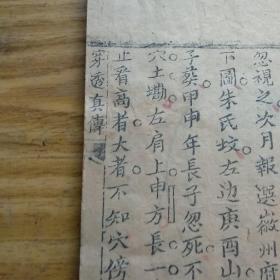 忽視之次月報選徽州府
下圖朱氏墳左边庚酉山
子葵甲申年長子忽死不
穴土墈左肩上申方長一
止看高者大者不知穴傍
穿透真傳